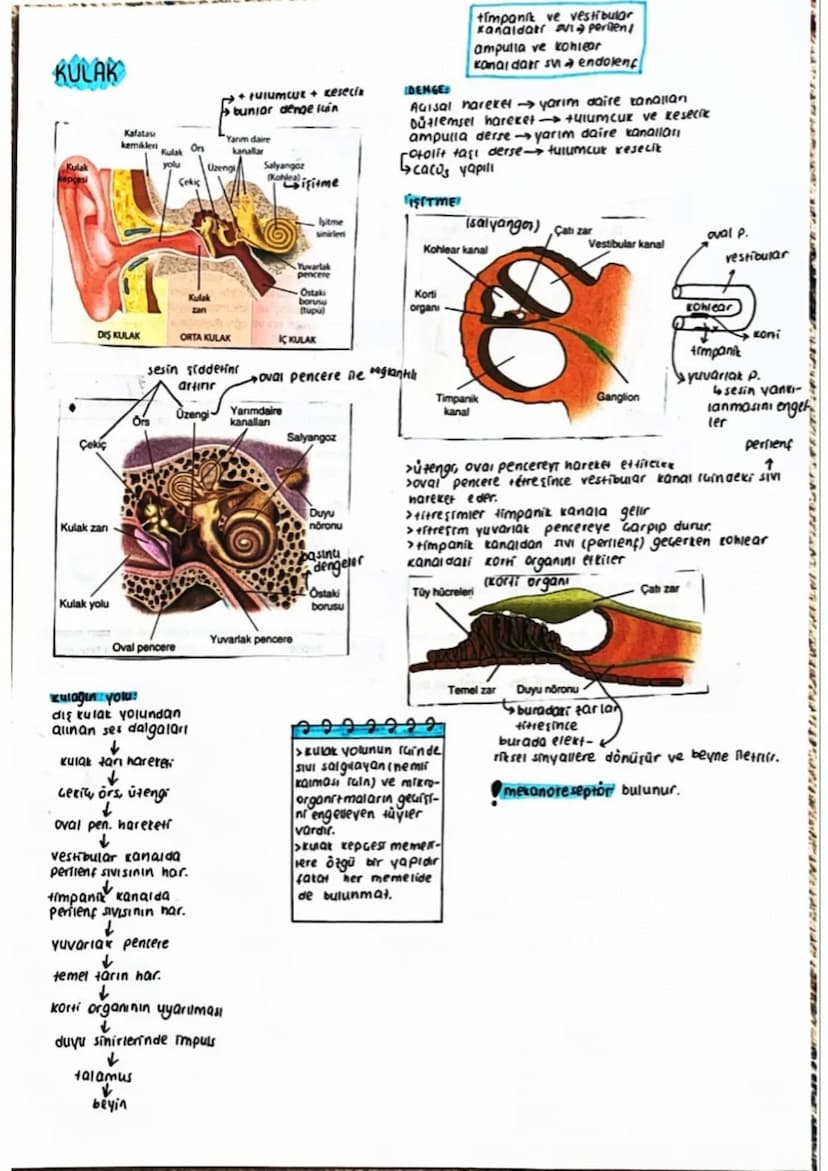 timpanik ve vestibular
kanaldaki sıvı → perilenf
ampulla ve kohlear
kanaldaki sıvı → endolenf
KULAK
+ tulumcuk + kesecik
bunlar denge için
Kafatası
kemikleri
Kulak
yolu
Örs
Yarım daire
kanallar
Üzengi
Salyangoz
(Kohlea)
→ işitme
Kulak
kepçesi
Çekiç
İşitme
sinirleri
Yuvarlak
pencere
Östaki
borusu
(tüpü)
Kulak
zarı
DIŞ KULAK
ORTA KULAK
İÇ KULAK
DENGE:
Açısal hareket → yarım daire kanalları
Düzlemsel hareket → tulumcuk ve kesecik
ampulla derse → yarım daire kanalları
otolit taşı derse → tulumcuk kesecik
→ CaCO₃ yapılı
İŞİTME:
(salyangoz)
Çatı zar
Kohlear kanal
Vestibular kanal
Korti
organı
Timpanik
kanal
Ganglion
oval p.
vestibular
kohlear
korti
timpanik
yuvarlak p.
↳ sesin yankı-
lanmasını engel-
ler
perilenf
sesin şiddetini
artırır
→ oval pencere ile bağlantılı
Çekiç
Örs
Üzengi
Yarımdaire
kanalları
Salyangoz
Kulak zarı
Duyu
nöronu
basıncı
dengeler
Kulak yolu
Östaki
borusu
Oval pencere
Yuvarlak pencere
>üzengi, oval pencereyi hareket ettirecek
>oval pencere titreşince vestibular kanal içindeki sıvı
hareket eder.
>titreşimler timpanik kanala gelir
>titreşim yuvarlak pencereye çarpıp durur.
>timpanik kanaldan sıvı (perilenf) geçerken kohlear
kanaldaki korti organını etkiler
(korti organı
Tüy hücreleri
Çatı zar
Temel zar
Duyu nöronu
→ buradaki zarlar
titreşince
burada elekt-
riksel sinyallere dönüşür ve beyne iletilir.
! mekanoreseptör bulunur.
kulağın yolu:
dış kulak yolundan
alınan ses dalgaları
↓
kulak zarı hareketi
↓
çekiç, örs, üzengi
↓
oval pen. hareketi
↓
vestibular kanalda
perilenf sıvısının har.
↓
timpanik kanalda
perilenf sıvısının har.
↓
yuvarlak pencere
↓
temel zarın har.
↓
korti organının uyarılması
↓
duyu sinirlerinde impuls
↓
talamus
↓
beyin
>kulak yolunun içinde
sıvı salgılayan (nemli
kalması için) ve mikro-
organizmaların geçişi-
ni engelleyen tüyler
vardır.
>kulak kepçesi memeli-
lere özgü bir yapıdır
fakat her memelide
de bulunmaz.